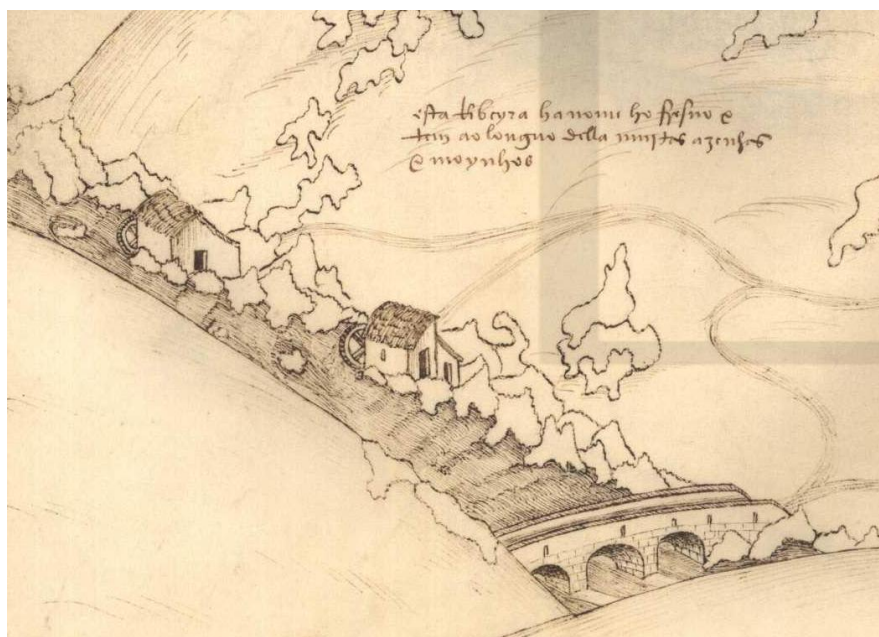 esta Ribeyra ha nome ho fresno e
tem ao longuo della muytas azenhas
e moynhos